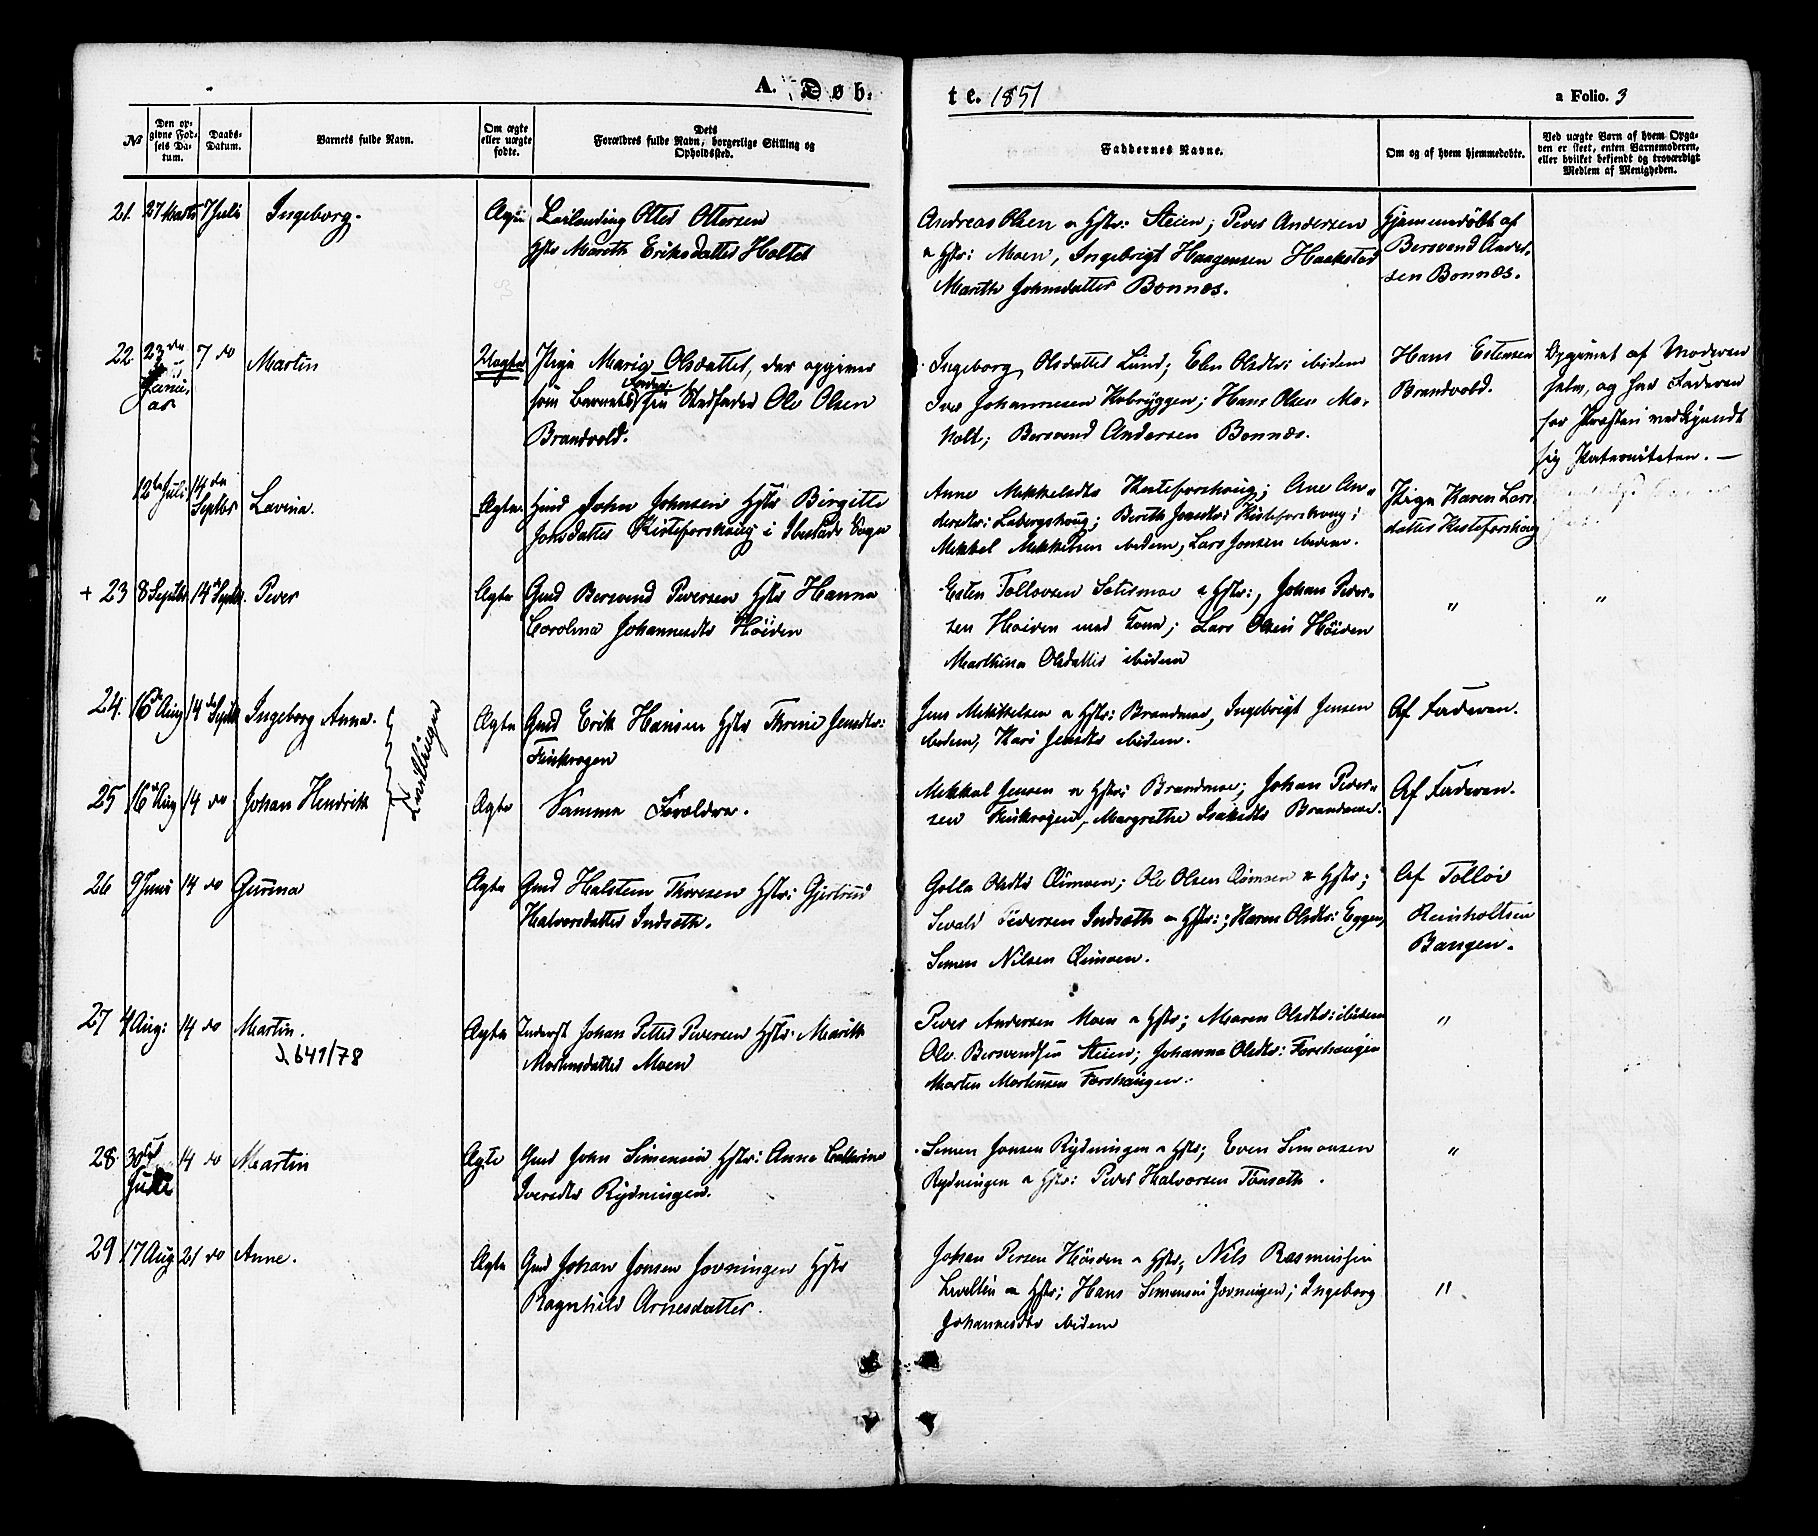 A. Døb.
te. 1851
a Folio. 3
No
Den opgivne Fødsels Datum.
Daabs-Datum.
Barnets fulde Navn.
Om ægte eller uægte fødte.
Dets Forældres fulde Navn, borgerlige Stilling og Opholdssted.
Faddernes Navne.
Om og af hvem hjemmedøbte.
Ved uægte Børn af hvem Opgaven er skeet, enten Barnemoderen, eller hvilket bekjendt og troværdigt Medlem af Menigheden.
21. 27 Marts 7 Juli Ingeborg. Ægte Leilending Otter Ottersen
Hstr Mareth Eriksdatter Holtet
Andreas Olsen & Hstr: Steien; Peder Andersen
& Hstr: Moen, Ingebrigt Haagensen Haakstad
Marethe Johnsdatter Bonnæs.
Hjemmedøbt af
Bersvend Ander-
sen Bonnæs.
22. 23de Januar 7 do Martin Uægte Pige Marig Olsdatter, der opgiver
som Barnets Fader sin Stedfader Ole Olsen
Brandvold.
Ingeborg Olsdatter Lund; Elen Olsdtr: ibidem
Iver Johannesen Kobryggen; Hans Olsen Mo-
holt; Bersvend Andersen Bonnæs.
Hans Estensen
Brandvold.
Opgivet af Moderen
selv, og har Faderen
for Præsten vedkjendt
sig Paterniteten. —
12te Juli 14de Septbr Lavina. Ægte Gmd John Johnsen Hstr Birgitte
Jonsdatter Kisteforshoug i Ibestads Sogn
Anne Mekkelsdtr Kisteforshoug; Ane An-
dersdtr: Labergshoug; Bereth Jonsdtr: Kisteforshoug;
Mekkel Mekkelsen ibidem, Lars Jonsen ibidem.
Pige Karen Lars-
datter Kisteforshoug
+ 23 8 Septbr 14de Septbr. Peder Ægte Gmd Bersvend Pedersen Hstr Hanna
Carolina Johannesdtr Høiden
Esten Tollovsen Sætermoe & Hstr:, Johan Peder-
sen Høiden med Kone; Lars Olsen Høiden
Marthina Olsdatter ibidem
" "
24. 16de Aug 14de Septb Ingeborg Anna. Ægte Gmd Erik Hansen Hstr Thrine Jensdtr:
Finkrogen
Jens Mekkelsen & Hstr: Brandmoe, Ingebrigt Jensen
ibidem, Kari Jensdtr ibidem.
Af Faderen.
Tvillinger
25 16de Aug 14 do Johan Hendrik Ægte Samme Forældre.
Mekkel Jensen & Hstr: Brandmoe; Johan Peder-
sen Finkrogen, Margrethe Isaksdtr Brandmoe.
Af Faderen.
26 9 Juni 14 do Guruna Ægte Gmd Halsten Thoresen Hstr: Gjertrud
Halvorsdatter Indseth.
Golla Olsdtr Ømoen; Ole Olsen Ømoen & Hstr;
Sivald Pedersen Indseth & Hstr:; Karen Olsdtr: Eggen,
Simen Nilsen Ømoen.
Af Tolløv
Reinholtsen
Bangen.
27 4 Aug: 14 do Martin. Ægte Inderst Johan Petter Pedersen Hstr: Mareth
Mortensdatter Moen
J. 641/78
Peder Andersen Moen & Hstr; Maren Olsdtr: ibidem
Ole Bersvendsen Steien; Johanna Olsdtr: Forshaugen
Morten Mortensen Forshaugen.
"
28. 30de Juli 14 do Martin Ægte Gmd John Simensen Hstr: Anne Cathrine
Iversdtr Rydningen.
Simen Jonsen Rydningen & Hstr; Even Simonsen
Rydningen & Hstr: Peder Halvorsen Fosseth.
"
29 17 Aug 21 do Anne. Ægte Gmd Johan Jonsen Jovningen Hstr
Ragnhild Arnesdatter.
Johan Persen Høiden & Hstr; Nils Rasmussen
& Hstr; Hans Simensen Jovningen; Ingeborg
Johannesdtr ibidem
"